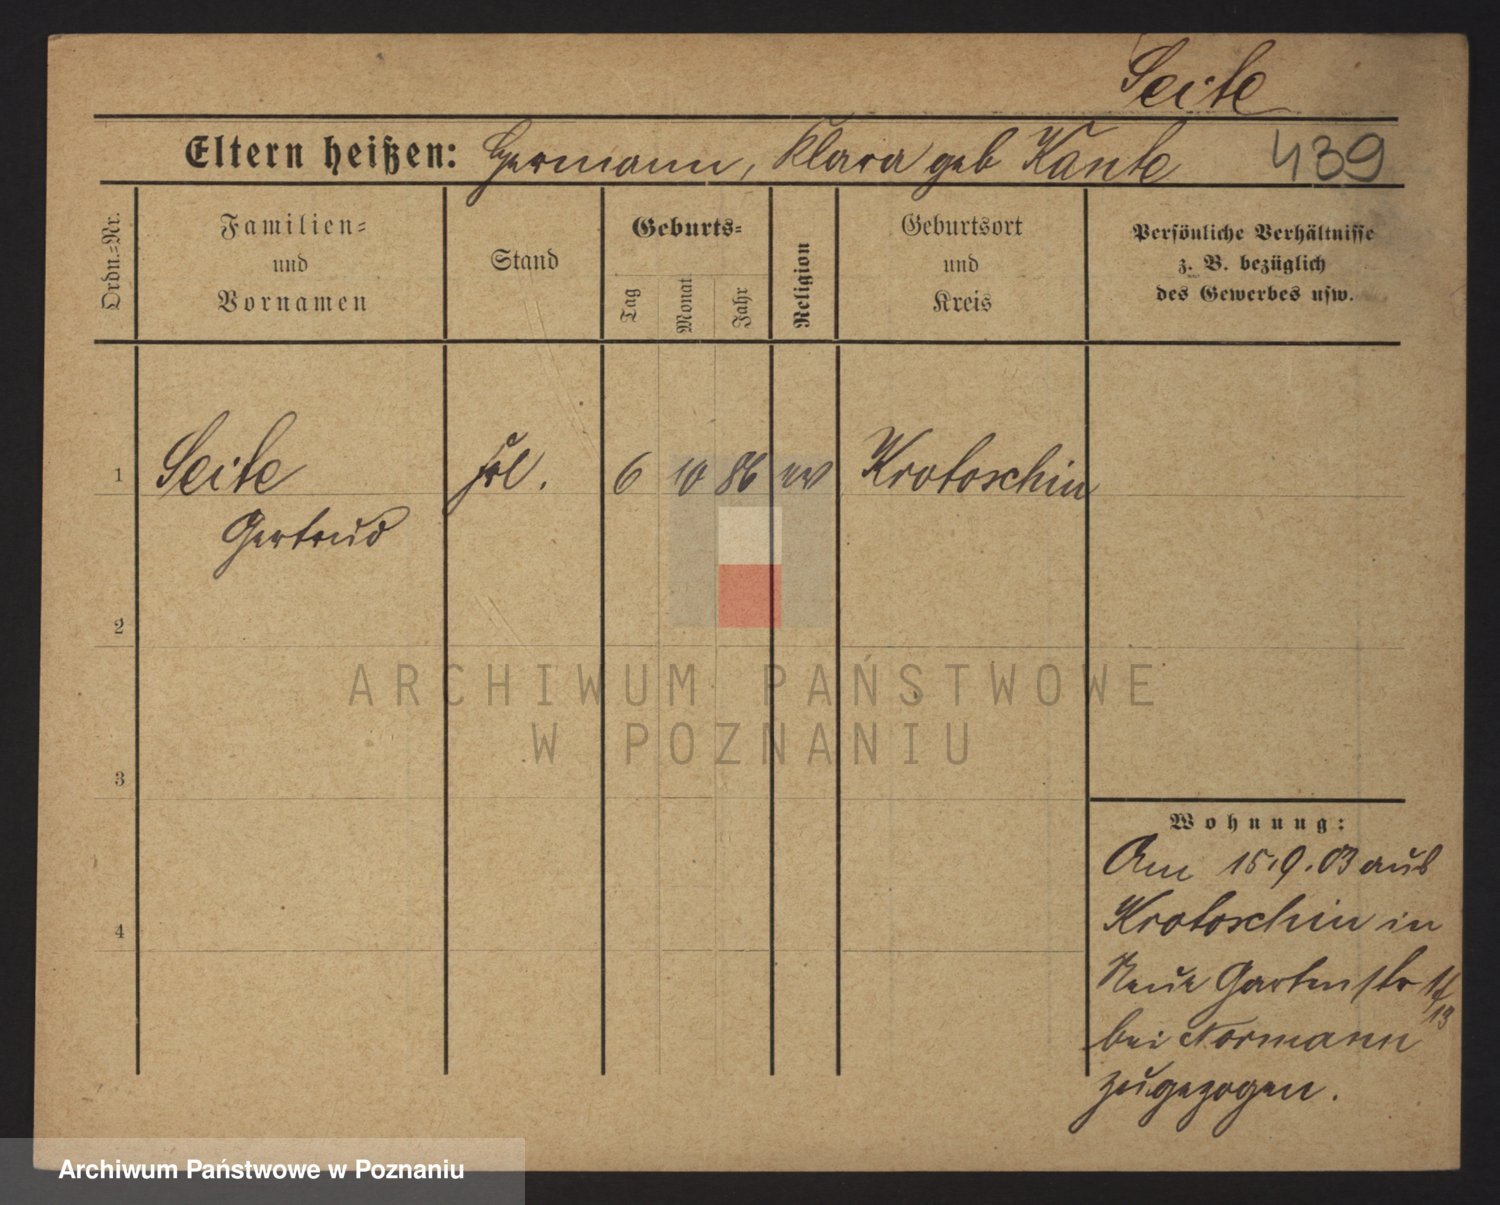 Seite
Eltern heißen: Hermann, Klara geb Kante 439
Ordn.=Nr.
Familien=
und
Vornamen
Stand
Geburts=
Tag
Monat
Jahr
Religion
Geburtsort
und
Kreis
Persönliche Verhältnisse
z. B. bezüglich
des Gewerbes usw.
1 Seite Frl. 6 10 86 ev Krotoschin
Gertrud
2
3
4
Wohnung:
Am 15.9.03 aus
Krotoschin in
Neue Gartenstr
13
bei Normann
zugezogen.
ARCHIWUM PAŃSTWOWE
W POZNANIU
Archiwum Państwowe w Poznaniu